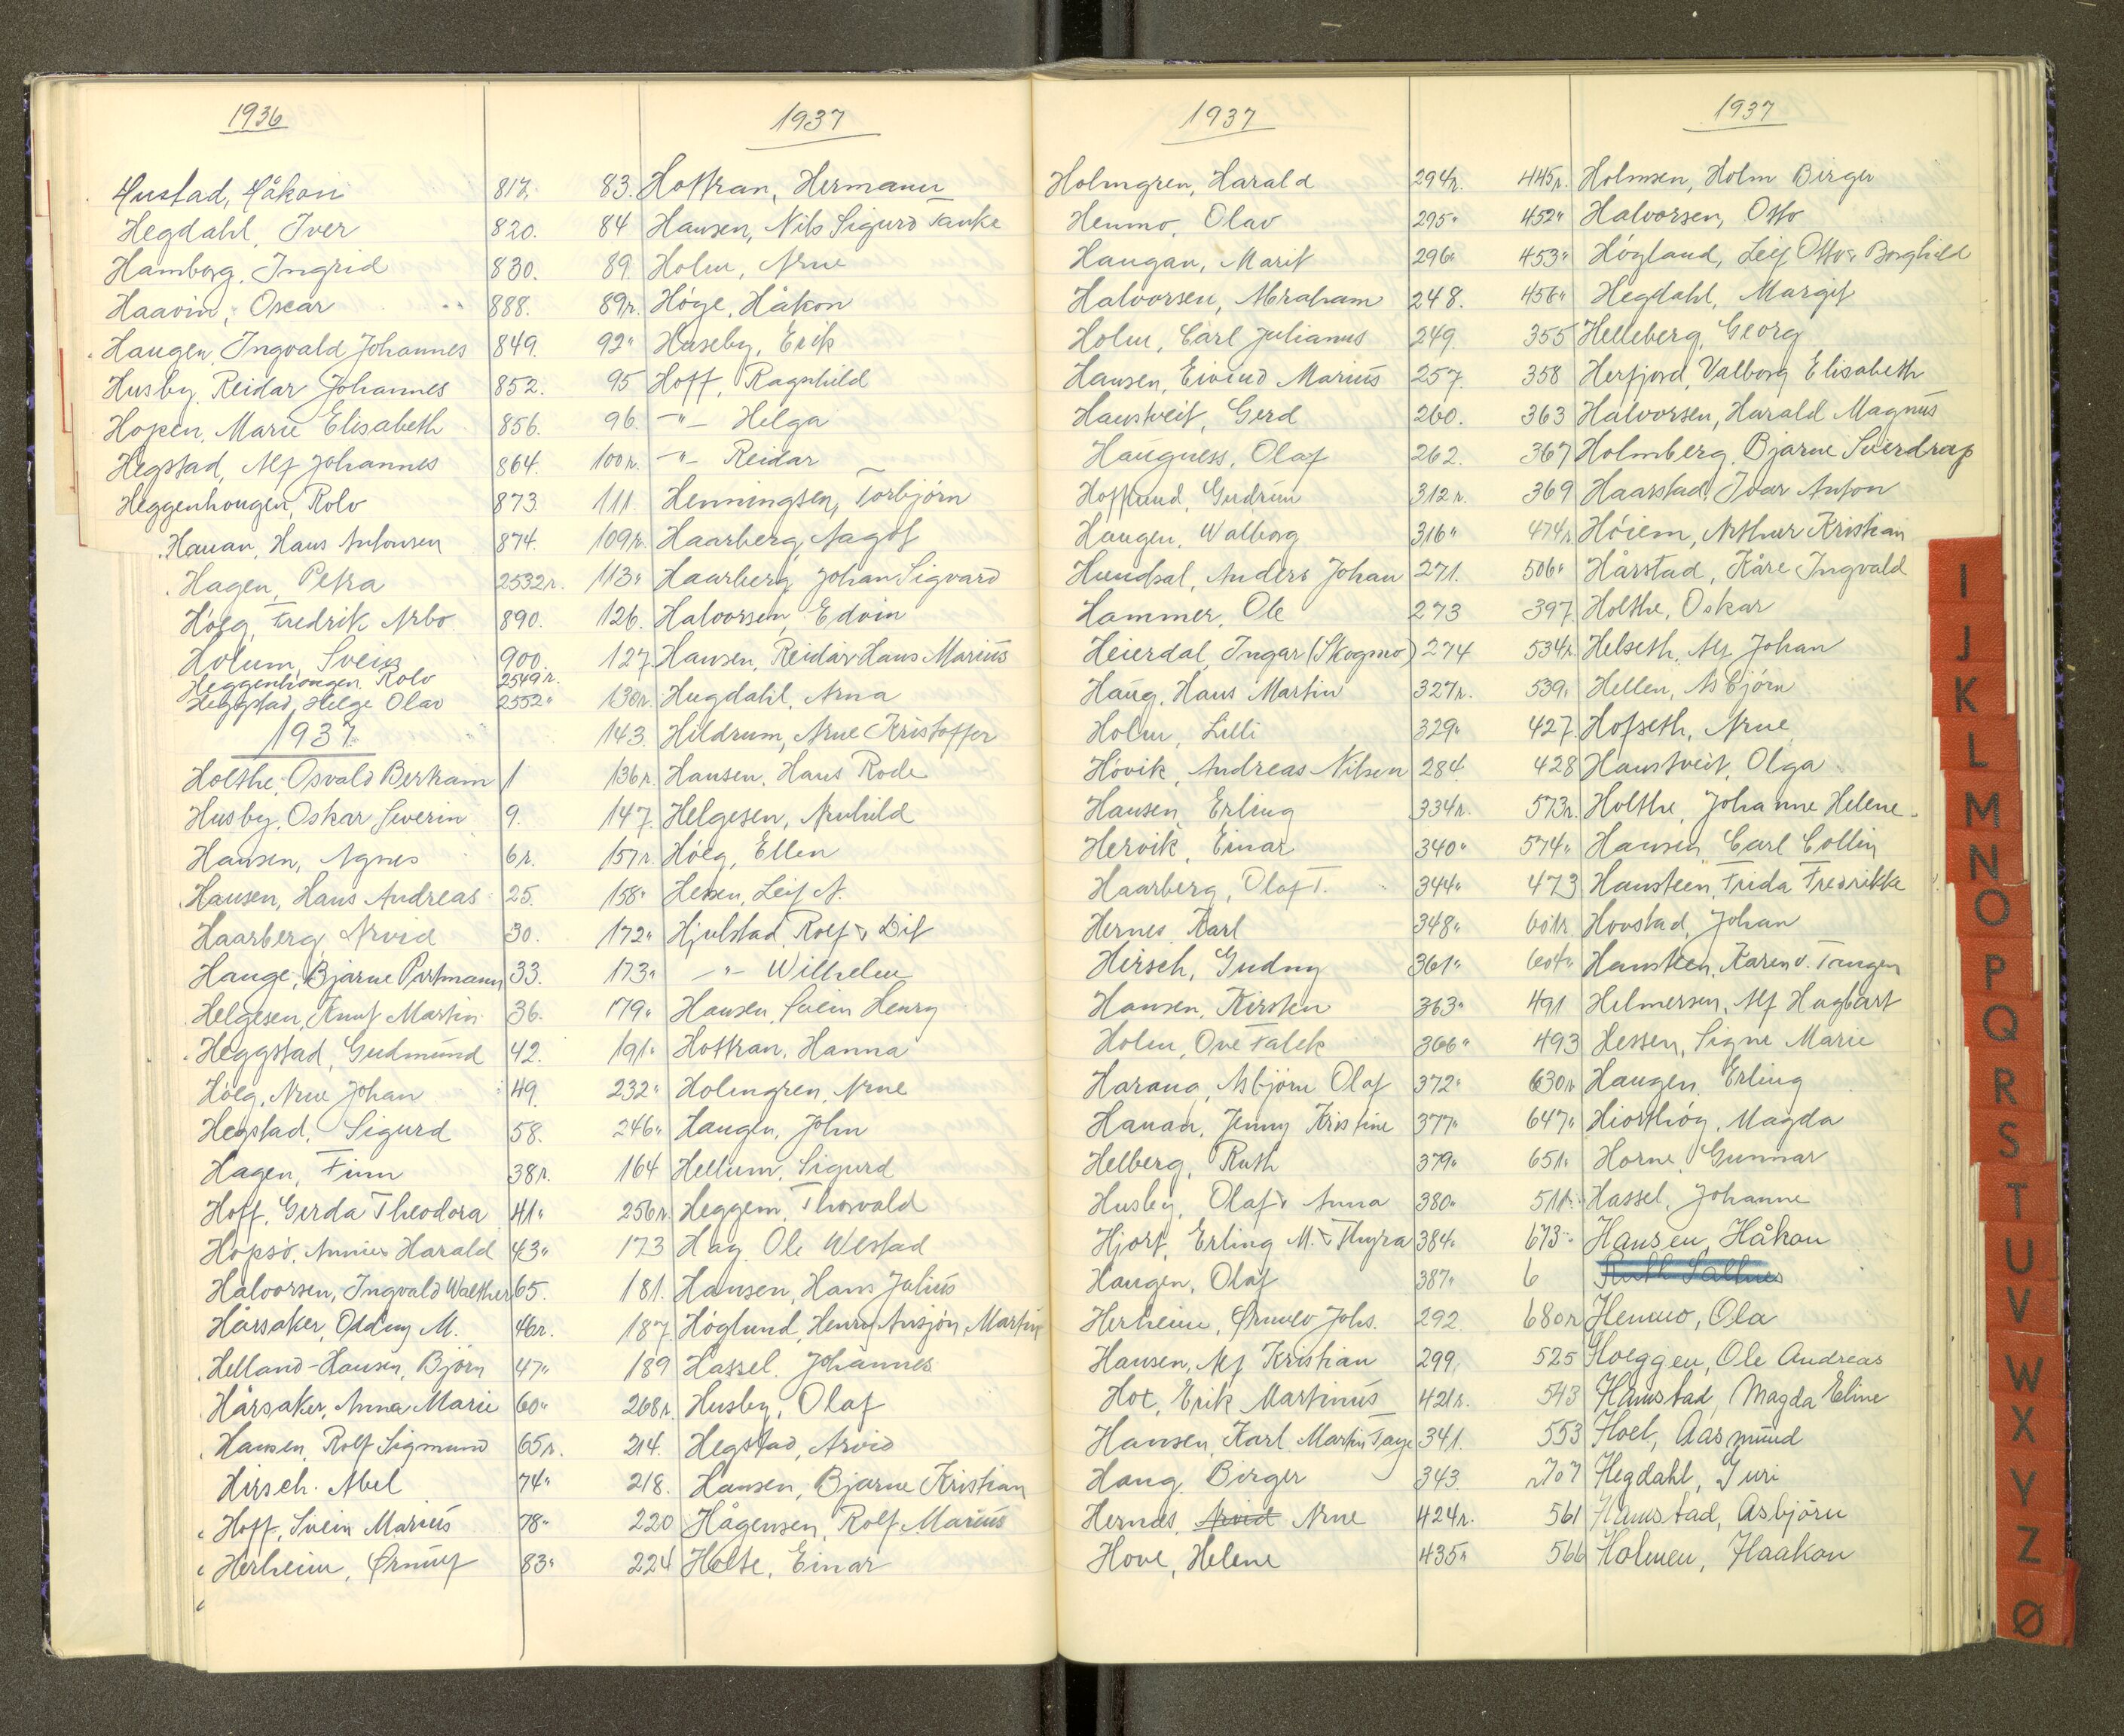 1936
Hustad, Håkon 817.
Hegdahl, Iver 820.
Hamborg, Ingrid 830.
Haavin, Oscar 888.
Haugen, Ingvald Johannes 849.
Husby, Reidar Johannes 852.
Hopen, Marie Elisabeth 856.
Hegstad, Alf Johannes 864.
Heggenhougen, Rolv 873
Hauan, Hans Antonsen 874.
Hagen, Petra 2532r.
Höeg, Fredrik Arbo 890.
Holum, Svein 900.
Heggenhougen, Rolv 2549r.
Heggstad, Helge Olav 2552"
1937.
Holthe, Osvald Bertram 1
Husby, Oskar Severin 9.
Hansen, Agnes 6r.
Hansen, Hans Andreas 25.
Haarberg, Arvid 30.
Hauge, Bjarne Portmann 33.
Helgesen, Knut Martin 36.
Heggstad, Gudmund 42.
Höeg, Arne Johan 49.
Hegstad, Sigurd 58.
Hagen, Finn 38r.
Hoff, Gerda Theodora 41"
Hopsö, Annies Harald 43"
Halvorsen, Ingvald Walther 65.
Hårsaker, Oddny M. 46r.
Helland-Hansen, Björn 47"
Hårsaker, Anna Marie 60"
Hansen, Rolf Sigmund 65r.
Hirsch, Abel 74"
Hoff, Svein Marius 78"
Herheim, Ørnulf 83"
1937
83. Hoftran, Hermann
84 Hansen, Nils Sigurd Tanke
89 Holm, Arne
89r. Höge, Håkon
92" Huseby, Erik
95 Hoff, Ragnhild
96. -"- Helga
100r. -"- Reidar
111. Henningsen, Torbjörn
109r. Haarberg, Aagot
113" Haarberg, Johan Sigvard
126. Halvorsen, Edvin
127. Hansen, Reidar Hans Marius
130r. Hugdahl, Arna
143. Hildrum, Arne Kristoffer
136r. Hansen, Hans Rode
147. Helgesen, Arnhild
157r. Höeg, Ellen
158" Hessen, Leif A.
172" Hjulstad, Rolf & Dit
173" -"- Wilhelm
179" Hansen, Svein Henry
191" Hoftran, Hanna
232" Holmgren, Arne
246" Haugen, John
164 Hellum, Sigurd
256r. Heggem, Thorvald
173 Hag, Ole Westad
181. Hansen, Hans Julius
187. Höglund, Henry Ansjön, Martin
189 Hassel, Johannes
268r. Husby, Olaf
214. Hegstad, Arvid
218. Hansen, Bjarne Kristian
220 Hågensen, Rolf Marius
224 Holte, Einar
1937
Holmgren, Harald 294r.
Henmo, Olav 295"
Haugan, Marit 296"
Halvorsen, Abraham 248.
Holm, Carl Julianus 249.
Hansen, Eivind Marius 257.
Haustveit, Gerd 260.
Haugness, Olaf 262.
Hoffund, Gudrun 312r.
Haugen, Walborg 316"
Hundsal, Anders Johan 271.
Hammer, Ole 273
Heierdal, Ingar (Skogmo) 274
Haug, Hans Martin 327r.
Holm, Lilli 329"
Hövik, Andreas Nilsen 284.
Hansen, Erling 334r.
Hervik, Einar 340"
Haarberg, Olaf T. 344"
Hernes, Karl 348"
Hirsch, Gudny 361"
Hansen, Kirsten 363"
Holm, Ove Falck 366"
Harang, Asbjörn Olaf 372"
Hauan, Jenny Kristine 377"
Helberg, Ruth 379"
Husby, Olaf & Anna 380"
Hjort, Erling M. & Thyra 384"
Haugen, Olaf 387"
Herheim, Ørnulv Johs. 292.
Hansen, Alf Kristian 299.
Hot, Erik Martinus 421r.
Hansen, Karl Martin Tage 341.
Haug, Birger 343.
Hernes, Arvid Arne 424r.
Hove, Helene 435"
1937
445r. Holmsen, Holm Birger
452" Halvorsen, Otto
453" Högland, Leif Otto & Borghild
456" Hegdahl, Margit
355 Helleberg, Georg
358 Herfjord, Valborg Elisabeth
363 Halvorsen, Harald Magnus
367 Holmberg, Bjarne Sverdrup
369 Haarstad, Ivar Anton
474r. Höiem, Arthur Kristian
506" Hårstad, Kåre Ingvald
397. Holthe, Oskar
534r. Helseth, Alf Johan
539" Hellen, Asbjörn
427. Hofseth, Arne
428 Haustveit, Olga
573r. Holthe, Johanne Helene
574" Hansen, Carl Collin
473 Hansteen, Frida Fredrikke
601r. Hovstad, Johan
604" Hansteen, Karen v. Tangen
491 Hilmersen, Alf Hagbart
493 Hessen, Signe Marie
630r. Haugen, Erling
647" Hiorthöy, Magda
651" Horne, Gunnar
511. Hassel, Johanne
673" Hansen, Håkon
6 Ruth Salthes
680r Henmo, Ola
525 Hoeggen, Ole Andreas
543 Hamstad, Magda Eline
553 Hoel, Aasmund
r707 Hegdahl, Guri
561 Hamstad, Asbjörn
566 Holmen, Haakon
I
J
K
L
M
N
O
P
Q
R
S
T
U
V
W
X
Y
Z
Ø